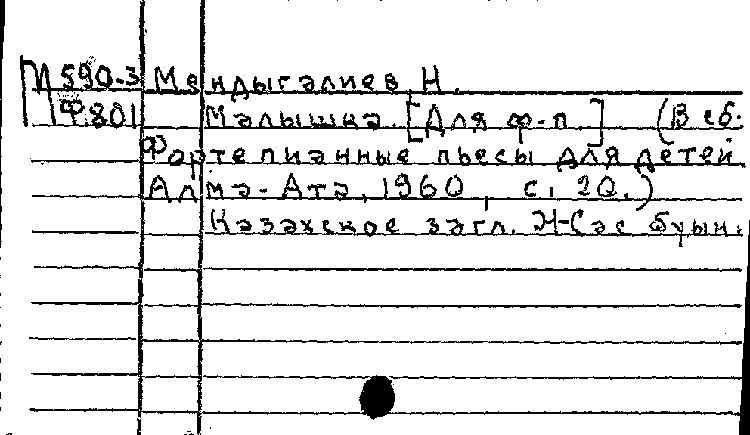 М 590-3 Мендыгалиев, Н.
Ф.801 Малышка. [Для ф-п.] (В сб.:
Фортепианные пьесы для детей.
Алма-Ата, 1960, с. 20.)
Казахское загл. Жас буын.